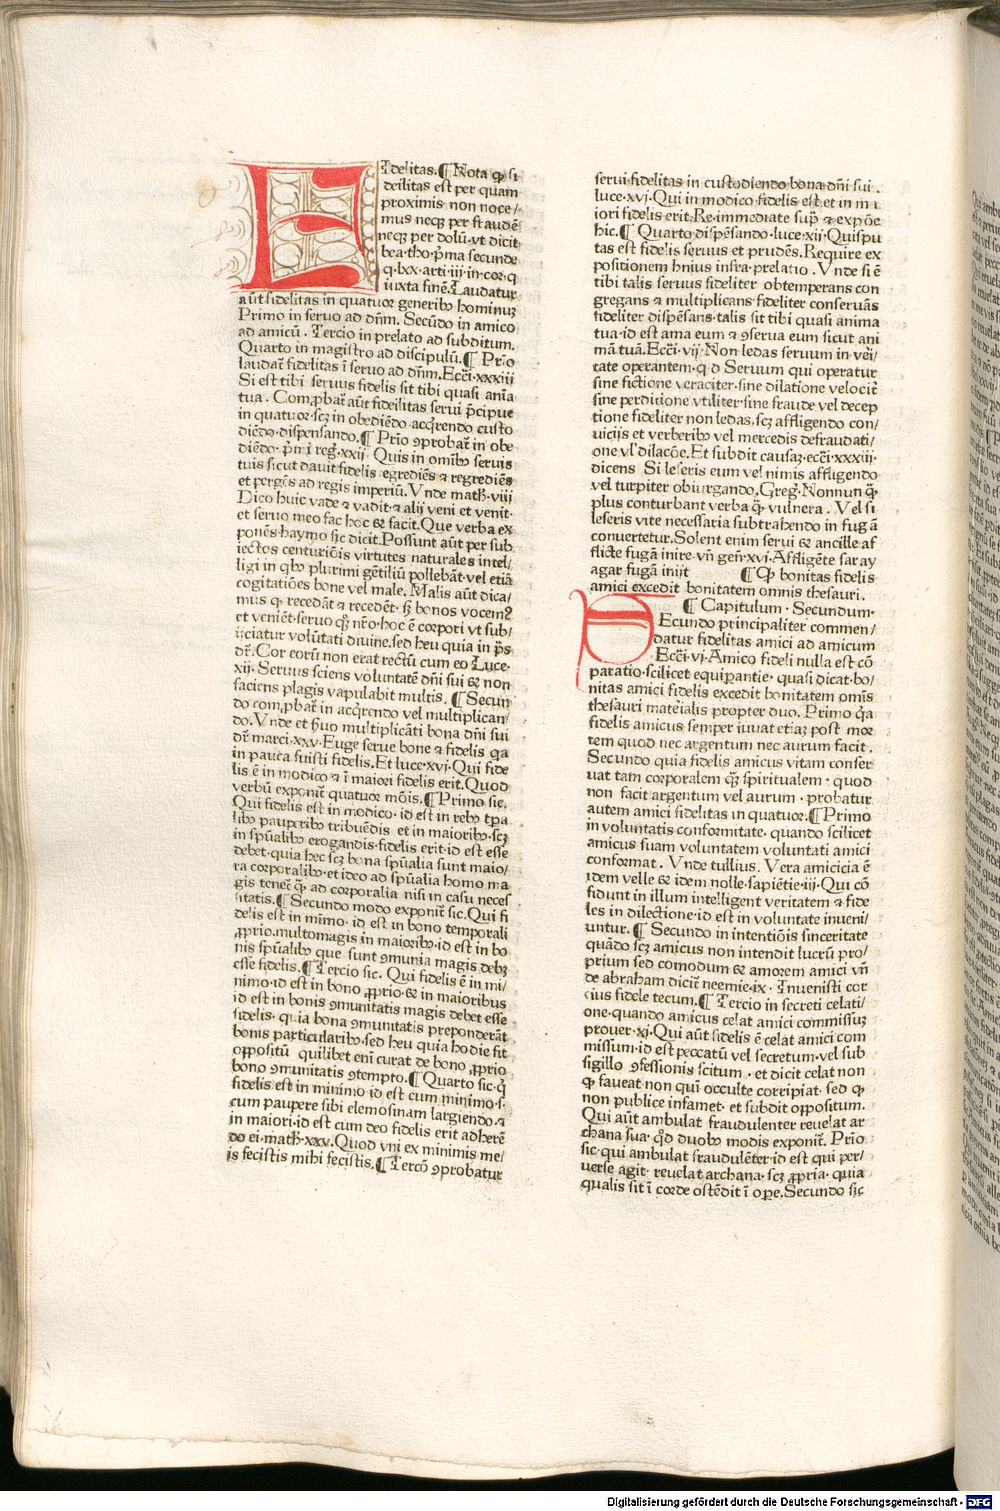 Fidelitas.¶Nota ꝙ fi
deilitas est per quam
proximis non noce/
mus neqꝫ per fraudē
neqꝫ per dolū·vt dicit
bea·tho·p̄ma secunde
q·lxx·arti·iii·in·cor·q
iuxta finē.Laudatur
aūt fidelitas in quatuor generibꝰ hominuꝫ
Primo in seruo ad dn̄m. Secūdo in amico
ad amicū. Tercio in prelato ad subditum.
Quarto in magistro ad discipulū.¶ Prīo
laudat̄ fidelitas ī seruo ad dn̄m.Ecc̄i·xxxiii
Si est tibi seruus fidelis sit tibi quasi anīa
tua. Com,pbat̄ aūt fideilitas serui p̄cipue
in quatuor·scꝫ in obediēdo·acq̄rendo custo
diēdo·dispensando.¶ Prīo ꝯprobat̄ in obe
diēdo· p̄m i reg̉·xxij· Quis in omībꝰ seruis
tuis sicut dauit fidelis egrediēs ⁊ regrediēs
et pergēs ad regis imperiū. Vnde math̄·viii
Dico huic vade ⁊ vadit·⁊ alij veni et venit·
et seruo meo fac hoc ⁊ facit. Que verba ex
ponēs haymo sic dicit.Possunt aūt per sub
iectos centuriōis virtutes naturales intel/
ligi in qbꝰ plurimi gētiliū pollebāt·vel etiā
cogitatiōes bone vel male. Malis aūt dica/
mus ꝙ recedāt ⁊ recedēt· ꝫ bonos vocem⁹
et veniēt·seruo qꝫ nr̄o·hoc ē corpori vt sub/
ijciatur volūtati diuine.sed heu quia in p̄s
dr̄. Cor eorū non erat rectū cum eo Luce·
xij· Seruus sciens voluntatē dn̄i sui ⁊ non
faciens plagis vapulabit multis. ¶ Secun
do com,pbat̄ in acq̄rendo vel multiplican/
do. Vnde et ꝑuo multiplicāti bona dn̄i sui
dr̄ marci·xxv·Euge serue bone ⁊ fidelis qa
in pauca fuisti fidelis.Et luce·xvj·Qui fide
lis ē in modico ⁊ ī maiori fidelis erit. Quod
verbū exponit̄ quatuor mōis.¶Primo sic.
Qui fidelis est in modico·id est in rebꝰ tpa
libꝰ pauperibꝰ tribuēdis et in maioribꝰ·scꝫ
in spūalibꝰ erogandis·fidelis erit·id est esse
debet·quia hec scꝫ bona spūalia sunt maio/
ra corporalibꝰ·et ideo ad spūalia homo ma
gis tenet̄ ꝙ̄ ad corporalia nisi in casu neces
sitatis.¶Secundo modo exponit̄ sic. Qui fi
delis est in mīmo· id est in bono temporali
ꝓprio.multomagis in maioribꝰ·id est in bo
nis spūalibꝰ que sunt ꝯmunia magis debꝫ
esse fidelis.¶Tercio sic. Qui fidelis ē in mi/
nimo·id est in bono ꝓprio·⁊ in maioribus
id est in bonis ꝯmunitatis magis debet esse
fidelis· quia bona ꝯmunitatis preponderāt
bonis particularibꝰ.sed heu quia hodie fit
oppositū quilibet enī curat de bono ꝓprio
bono ꝯmunitatis ꝯtempto.¶Quarto sic·q̄
fidelis est in minimo·id est cum minimo·s·
cum paupere sibi elemosinam largiendo·⁊
in maiori·id est cum deo fidelis erit adherē
do ei·math̄·xxv.Quod vni ex minimis me/
is fecistis mihi fecistis.¶Tercō ꝯprobatur
serui fidelitas in custodiendo bona dn̄i sui.
luce·xvj·Qui in modico fidelis est et in ma
iori fidelis erit.Re·immediate sup̄ ⁊ expōe
hic.¶ Quarto dispēsando·luce·xij·Quis pu
tas est fidelis seruus et prudēs. Require ex
positionem huius infra·prelatio. Vnde si ē
tibi talis seruus fideliter obtemperans con
gregans ⁊ multiplicans fideliter conseruās
fideliter dispēsans·talis sit tibi quasi anima
tua·id est ama eum ⁊ ꝯserua eum sicut ani
mā tuā. Ecc̄i· vij·Non ledas seruum in veri
tate operantem·q d Seruum qui operatur
sine fictione veraciter·sine dilatione velocit̄
sine perditione vtiliter·sine fraude vel decep
tione fideliter non ledas.scꝫ affligendo con/
vicijs et verberibꝰ vel mercedis defraudati/
one vl̓ dilacōe.Et subdit causaꝫ·ecc̄i·xxxiij·
dicens Si leseris eum vel nimis affligendo
vel turpiter obiurgando. Greg̉. Nonnun ꝙ̄
plus conturbant verba ꝙ̄ vulnera. Vel si
leseris vite necessaria subtrahendo in fugā
conuertetur. Solent enim serui ⁊ ancille af
flicte fugā inire·vn̄ gen̄·xvj· Affligēte saray
agar fugā inijt ¶ Ꝙ bonitas fidelis
amici excedit bonitatem omnis thesauri.
¶ Capitulum · Secundum·
SEcundo principaliter commen/
datur fidelitas amici ad amicum
Ecc̄i·vj·Amico fideli nulla est cō
paratio·scilicet equiparātie· quasi dicat·bo/
nitas amici fidelis excedit bonitatem omīs
thesauri materialis propter duo. Primo q̄a
fidelis amicus semper iuuat etiaꝫ post mor
tem quod nec argentum nec aurum facit.
Secundo quia fidelis amicus vitam conser
uat tam corporalem ꝙ̄ spiritualem · quod
non facit argentum vel aurum · probatur
autem amici fidelitas in quatuor.¶Primo
in voluntatis conformitate· quando scilicet
amicus suam voluntatem voluntati amici
conformat. Vnde tullius. Vera amicicia ē
idem velle ⁊ idem nolle·sapiētie·iij· Qui cō
fidunt in illum intelligent veritatem ⁊ fide
les in dilectione·id est in voluntate inueni/
untur.¶ Secundo in intentiōis sinceritate
quādo scꝫ amicus non intendit lucrū pro/
prium sed comodum ⁊ amorem amici vn̄
de abraham dicit̄ neemie·ix· Inuenisti cor
eius fidele tecum.¶ Tercio in secreti celati/
one·quando amicus celat amici commissuꝫ
prouer·xj·Qui aūt fidelis ē celat amici com
missum·id est peccatū vel secretum·vel sub
sigillo ꝯfessionis scitum · et dicit celat non
ꝙ faueat non quī occulte corripiat· sed ꝙ
non publice infamet· et subdit oppositum.
Qui aūt ambulat fraudulenter reuelat ar
chana sua· qd̄ duobꝰ modis exponit̄. Prīo
sic·qui ambulat fraudulēter·id est qui per/
uerse agit· reuelat archana·scꝫ ꝓpria· quia
qualis sit ī corde ostēdit ī ope.Secundo sic
Digitalisierung gefördert durch die Deutsche Forschungsgemeinschaft - DFG